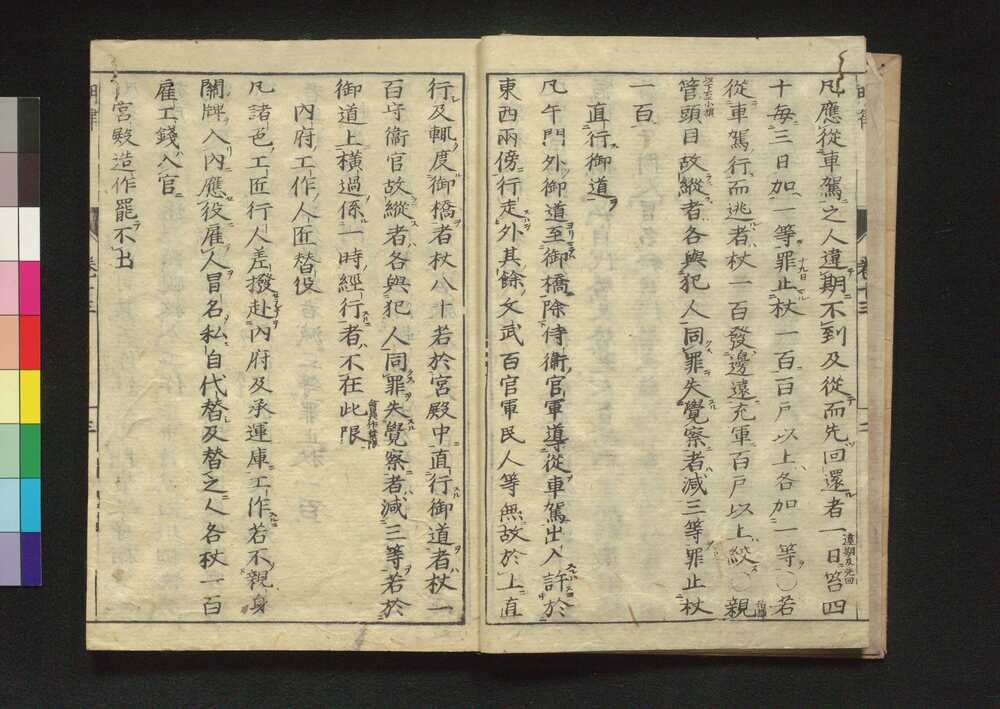 凡應從車駕之人違期不到及從而先回還者一日笞四
十每三日加一等罪止杖一百百戸以上各加一等〇若
從車駕行而逃者杖一百發邊遠充軍百戸以上絞〇親
管頭目故縱者各與犯人同罪失覺察者減三等罪止杖
一百
直行御道
凡午門外御道至御橋除侍衛官軍導從車駕出入許於
東西兩傍行走外其餘文武百官軍民人等無故於上直
行及輒度御橋者杖八十若於宮殿中直行御道者杖一
百守衛官故縱者各與犯人同罪失覺察者減三等若於
御道上橫過係一時經行者不在此限
內府工作人匠替役
凡諸色工匠行人差撥赴內府及承運庫工作若不親身
關牌入內應役雇人冒名私自代替及替之人各杖一百
雇工錢入官
宮殿造作罷不出